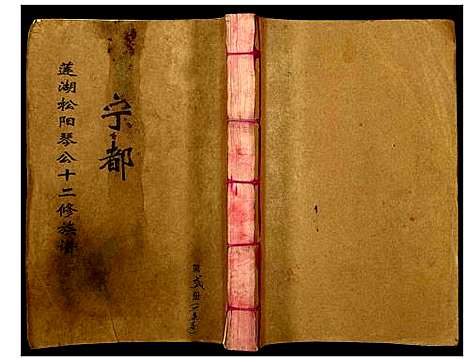 莲湖松阳琴公十二修族谱
宗都
第贰册